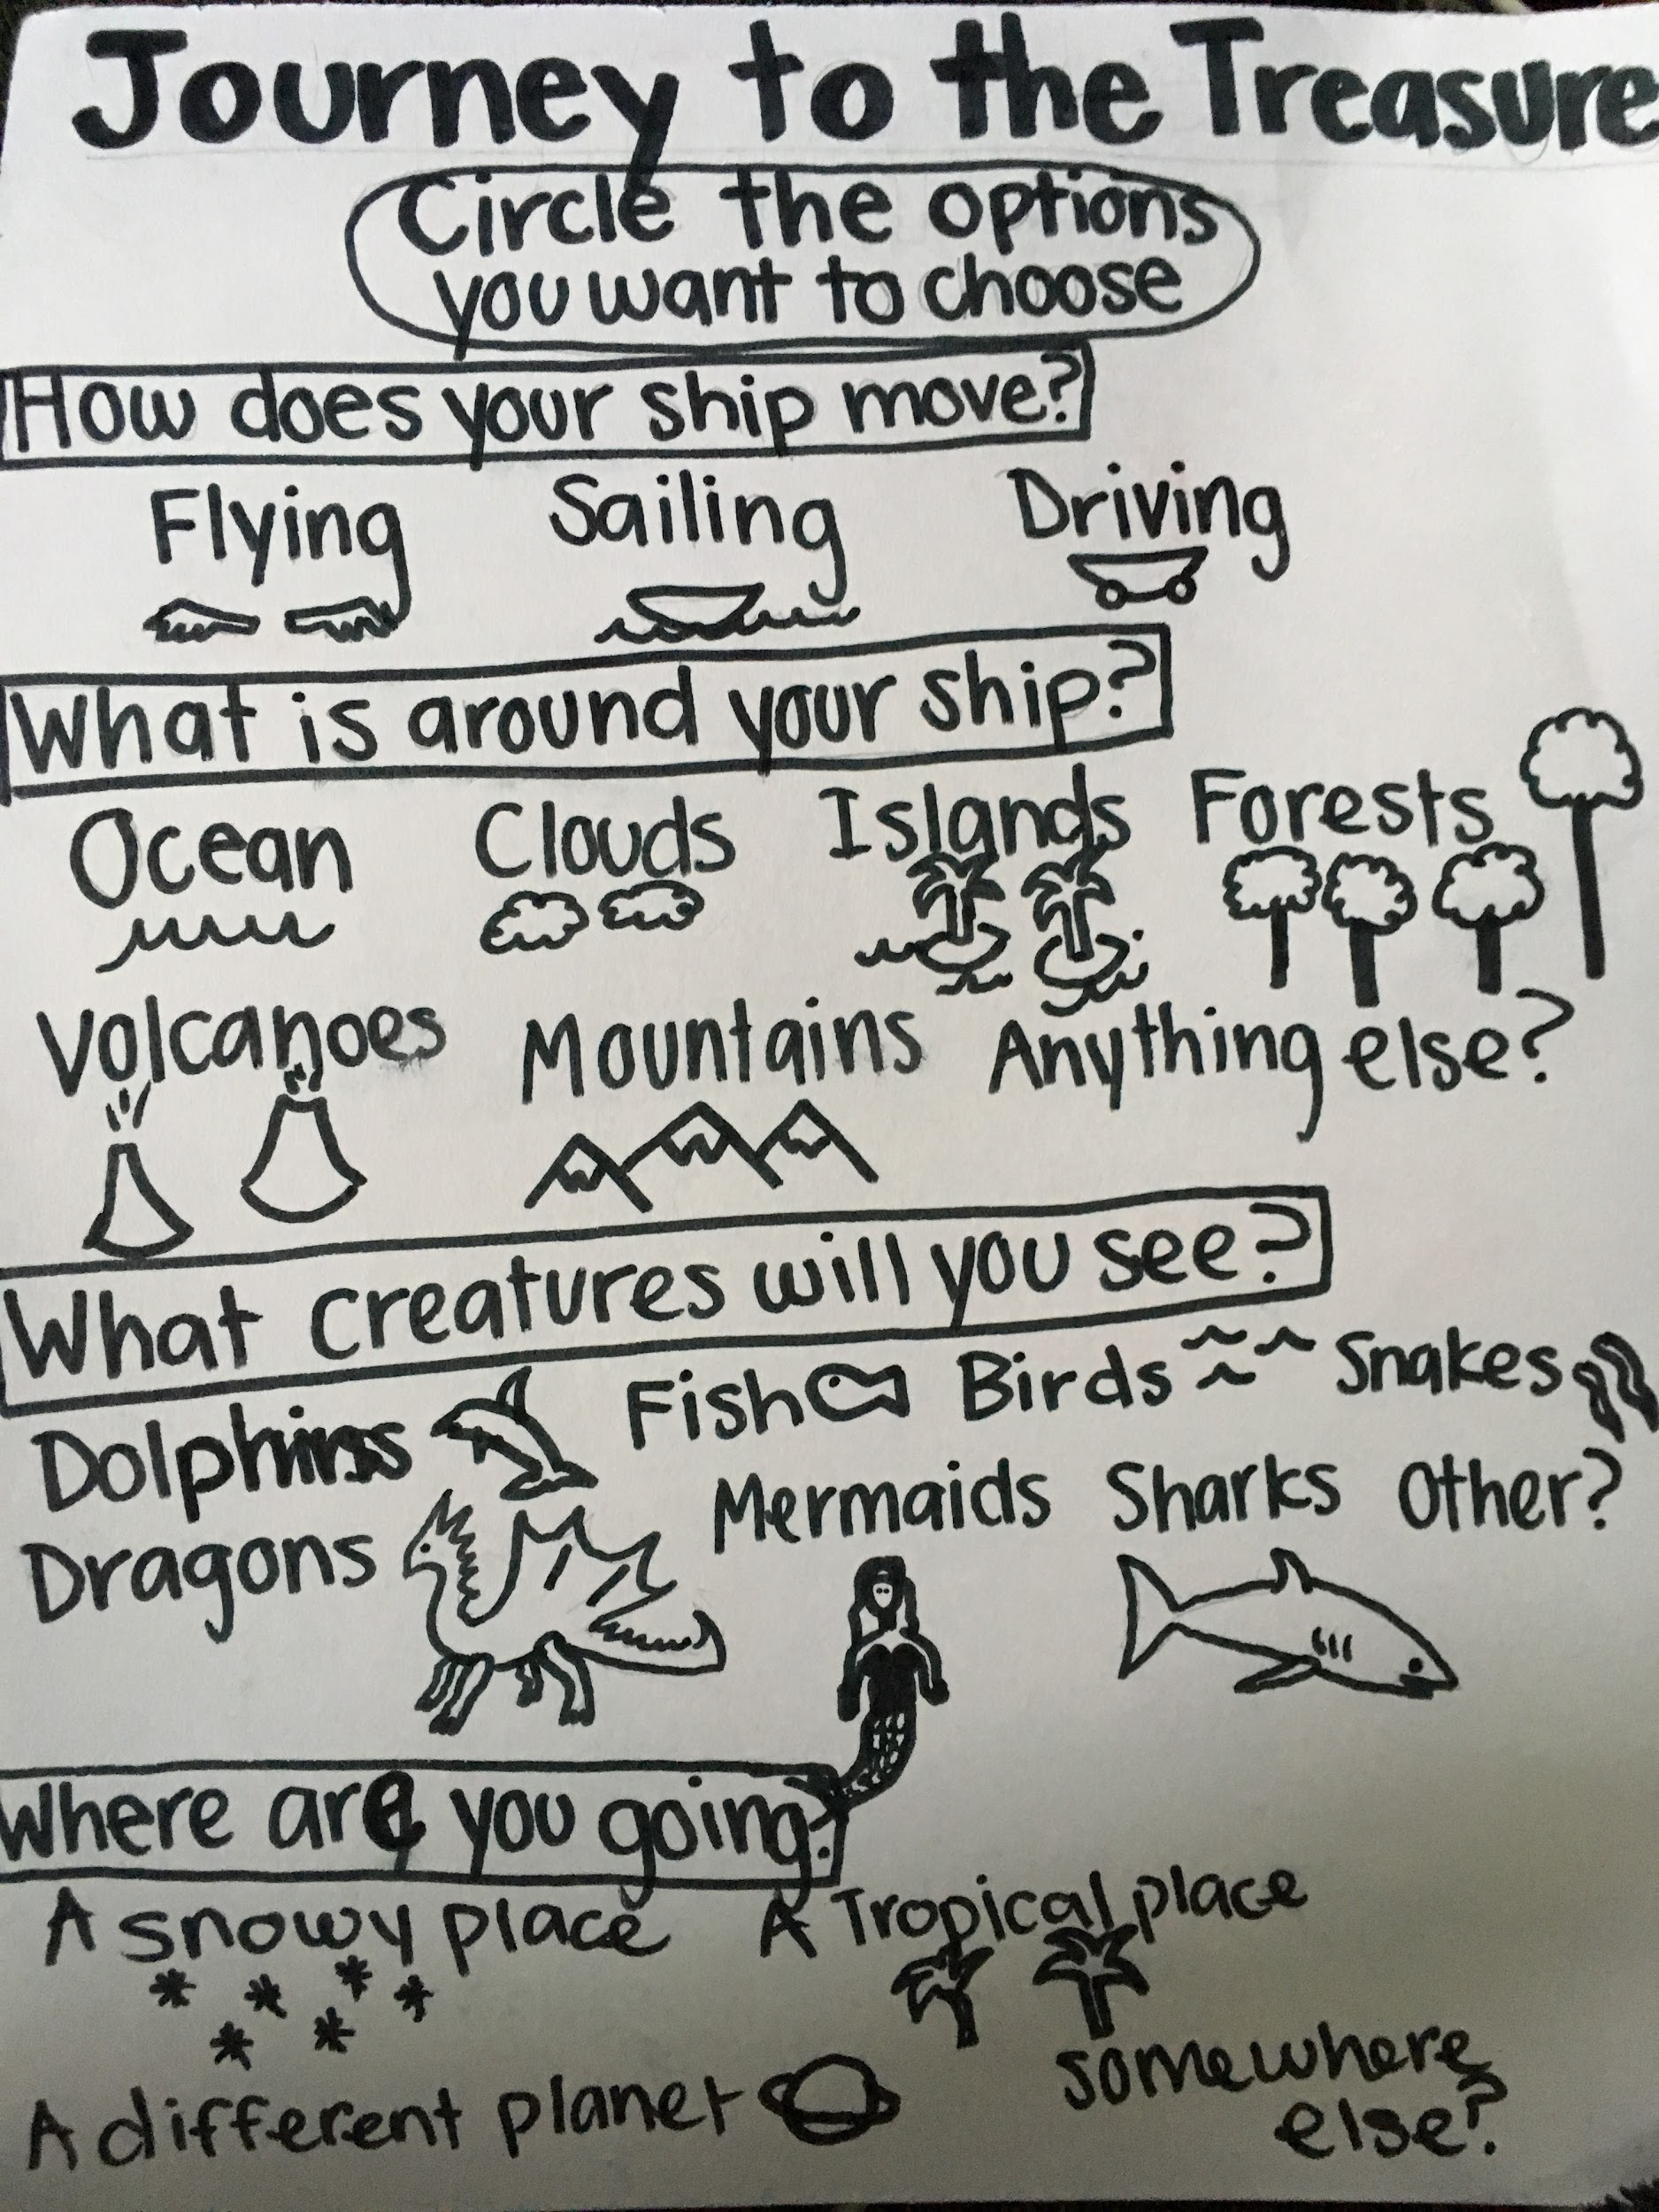 Journey to the Treasure
Circle the options
you want to choose
How does your ship move?
Flying Sailing Driving
What is around your ship?
Ocean Clouds Islands Forests
Volcanoes Mountains Anything else?
What creatures will you see?
Dolphins Fish Birds Snakes
Dragons Mermaids Sharks Other?
Where are you going?
A snowy place A Tropical place
A different planet somewhere
else?